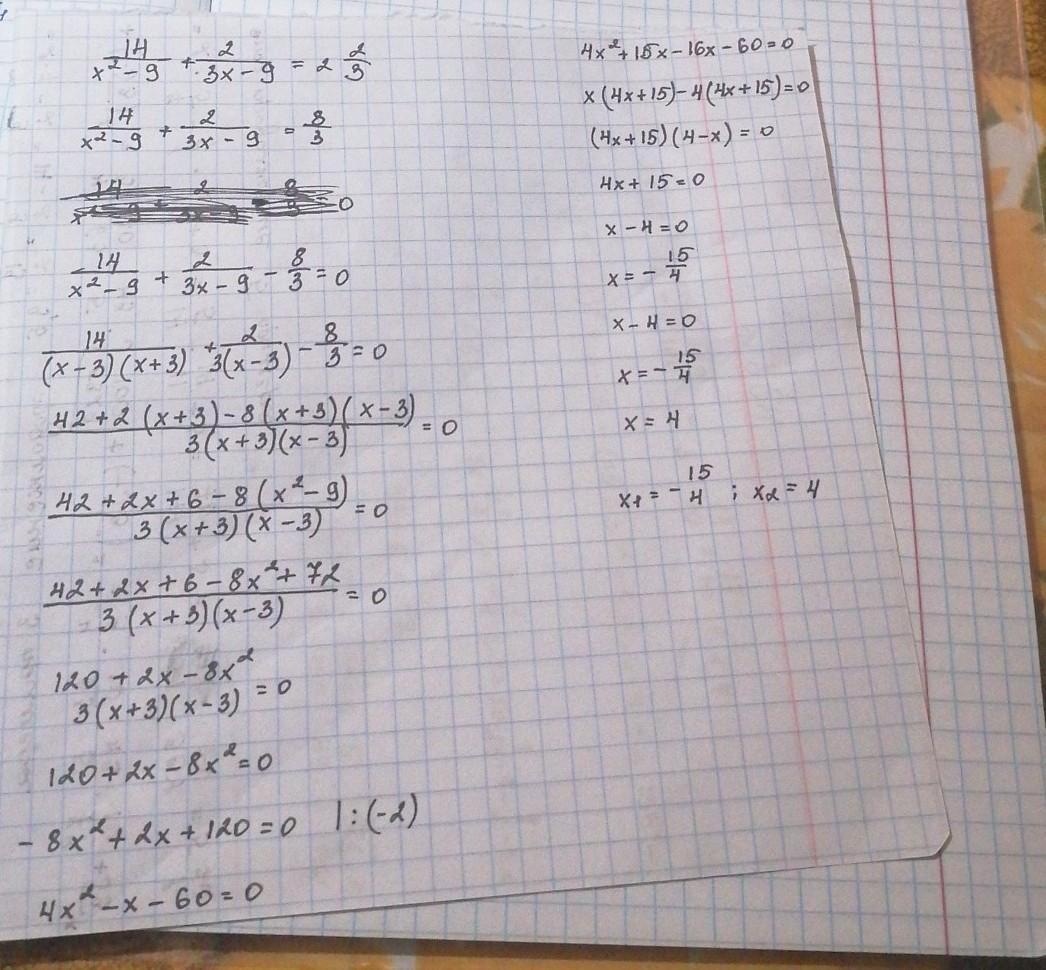 14/(x²-9) + 2/(3x-9) = 2 2/3
14/(x²-9) + 2/(3x-9) = 8/3
14/(x²-9) + 2/(3x-9) - 8/3 = 0
14/(x²-9) + 2/(3x-9) - 8/3 = 0
14/((x-3)(x+3)) + 2/(3(x-3)) - 8/3 = 0
(42+2(x+3)-8(x+3)(x-3))/(3(x+3)(x-3)) = 0
(42+2x+6-8(x²-9))/(3(x+3)(x-3)) = 0
(42+2x+6-8x²+72)/(3(x+3)(x-3)) = 0
(120+2x-8x²)/(3(x+3)(x-3)) = 0
120+2x-8x²=0
-8x²+2x+120=0 |:(-2)
4x²-x-60=0
4x²+15x-16x-60=0
x(4x+15)-4(4x+15)=0
(4x+15)(4-x)=0
4x+15=0
x-4=0
x=-15/4
x-4=0
x=-15/4
x=4
x1=-15/4; x2=4